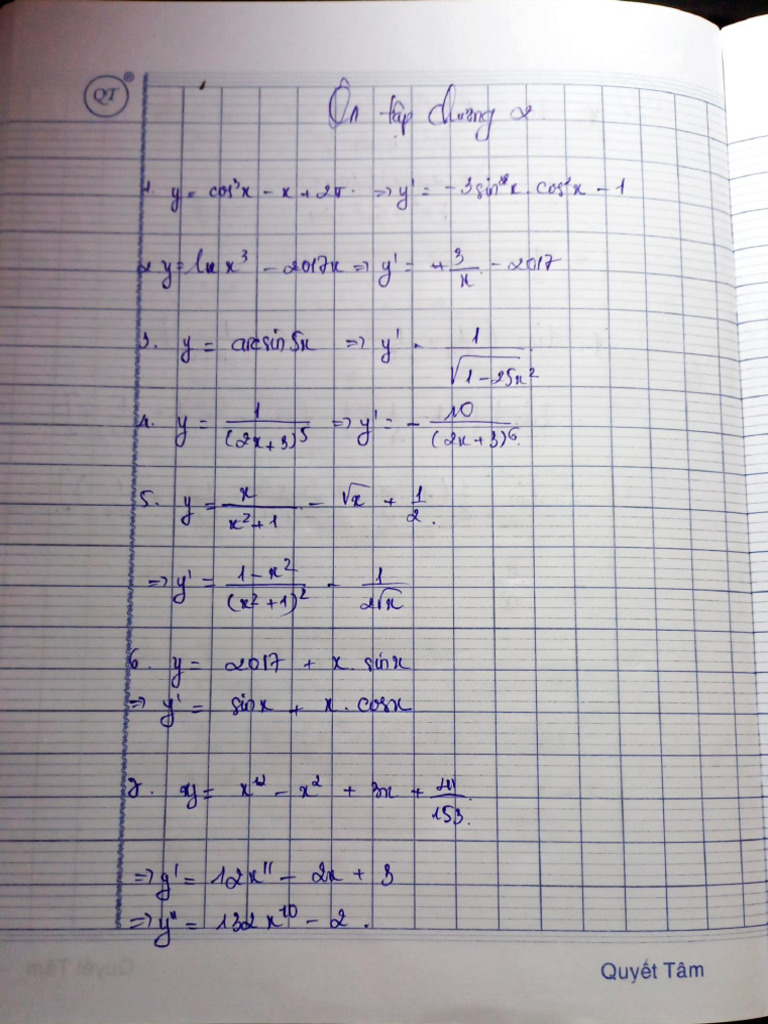 QT®
Ôn tập chương 2
1. y = cos³x - x + 2π. => y' = -3sinx.cos²x - 1
2. y = ln x³ - 2017x => y' = +3/x - 2017
3. y = arcsin5x => y' = 1/√(1-25x²)
4. y = 1/(2x+3)⁵ => y' = - 10/(2x+3)⁶.
5. y = x/(x²+1) - √x + 1/2.
=> y' = (1-x²)/(x²+1)² - 1/(2√x)
6. y = 2017 + x.sinx
=> y' = sinx + x.cosx
7. y = x¹² - x² + 3x + /153.
=> y' = 12x¹¹ - 2x + 3
=> y'' = 132x¹⁰ - 2.
Quyết Tâm